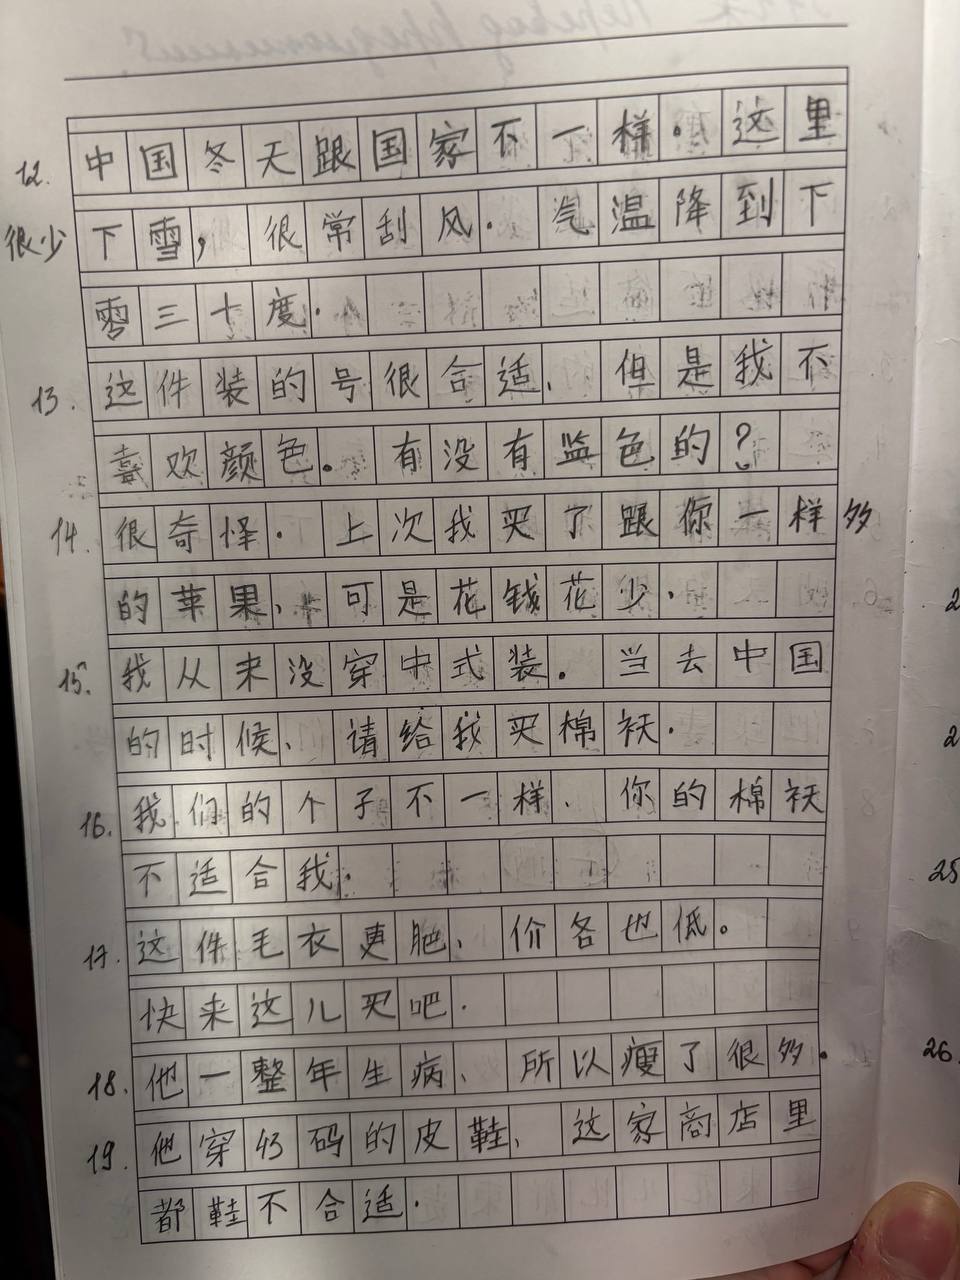 12. 中国冬天跟国家不一样。这里
很少下雪，很常刮风。气温降到下
零三十度。
13. 这件装的号很合适、但是我不
喜欢颜色。有没有监色的？
14. 很奇怪。上次我买了跟你一样多
的苹果、可是花钱花少。
15. 我从来没穿中式装。当去中国
的时候、请给我买棉袄。
16. 我们的个子不一样、你的棉袄
不适合我。
17. 这件毛衣更肥、价各也低。
快来这儿买吧。
18. 他一整年生病、所以瘦了很多。
19. 他穿43码的皮鞋、这家商店里
都鞋不合适。
2
2
25
26